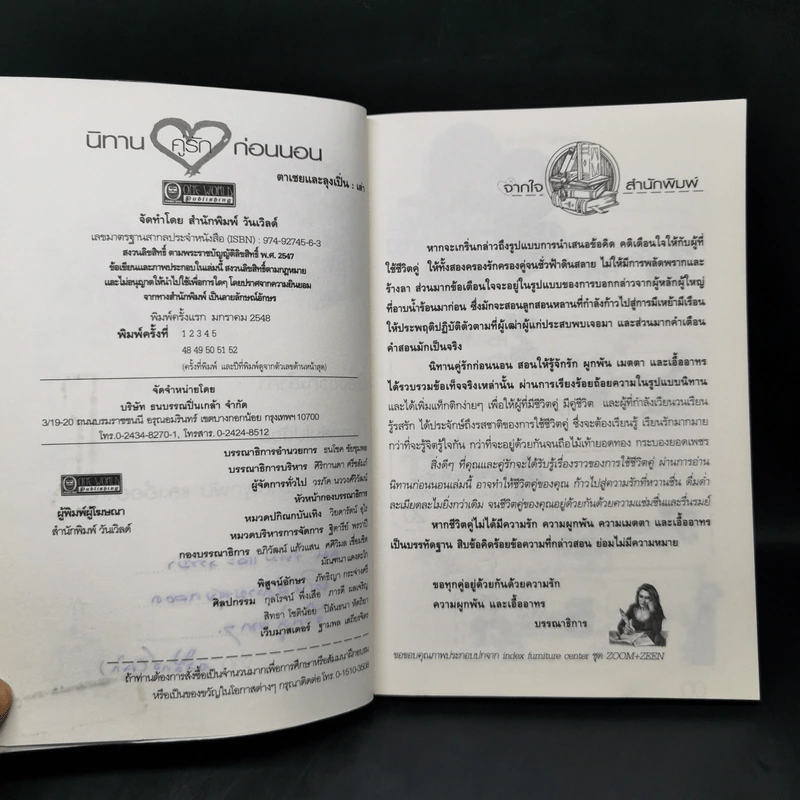 นิทาน คู่รัก ก่อนนอน
ตาเชยและลุงเปิ่น : เล่า
ONE WORLD
Publishing
จัดทำโดย สำนักพิมพ์ วันเวิลด์
เลขมาตรฐานสากลประจำหนังสือ (ISBN) : 974-92745-6-3
สงวนลิขสิทธิ์ ตามพระราชบัญญัติลิขสิทธิ์ พ.ศ. 2547
ข้อเขียนและภาพประกอบในเล่มนี้ สงวนลิขสิทธิ์ตามกฎหมาย
และไม่อนุญาตให้นำไปใช้เพื่อการใดๆ โดยปราศจากความยินยอม
จากทางสำนักพิมพ์ เป็นลายลักษณ์อักษร
พิมพ์ครั้งแรก มกราคม 2548
พิมพ์ครั้งที่ 1 2 3 4 5
48 49 50 51 52
(ครั้งที่พิมพ์ และปีที่พิมพ์ดูจากตัวเลขด้านหน้าสุด)
จัดจำหน่ายโดย
บริษัท ธนบรรณปิ่นเกล้า จำกัด
3/19-20 ถนนบรมราชชนนี อรุณอมรินทร์ เขตบางกอกน้อย กรุงเทพฯ 10700
โทร.0-2434-8270-1, โทรสาร. 0-2424-8512
บรรณาธิการอำนวยการ ธนโชค
บรรณาธิการบริหาร ศิริกานดา
ผู้จัดการทั่วไป วรภัค
หัวหน้ากองบรรณาธิการ
หมวดปกิณกบันเทิง วิยดารัตน์
หมวดบริหารการจัดการ
กองบรรณาธิการ อภิวัฒน์ แก้วแสน
พิสูจน์อักษร ภัทริญา
ศิลปกรรม กุลโรจน์ พึ่งเสือ
สิทธา โชติน้อย
เว็บมาสเตอร์ ฐามพล
ONE WORLD
ผู้พิมพ์ผู้โฆษณา
สำนักพิมพ์ วันเวิลด์
ถ้าท่านต้องการสั่งซื้อเป็นจำนวนมากเพื่อการศึกษาหรือสัมมนาฝึกอบรม
หรือเป็นของขวัญในโอกาสต่างๆ กรุณาติดต่อ โทร. 0-1510-3508
จากใจ สำนักพิมพ์
หากจะเกริ่นกล่าวถึงรูปแบบการนำเสนอข้อคิด คติเตือนใจให้กับผู้ที่
ใช้ชีวิตคู่ ให้ทั้งสองครองรักครองคู่จนชั่วฟ้าดินสลาย ไม่ให้มีการพลัดพรากและ
ร้างลา ส่วนมากข้อเตือนใจจะอยู่ในรูปแบบของการบอกกล่าวจากผู้หลักผู้ใหญ่
ที่อาบน้ำร้อนมาก่อน ซึ่งมักจะสอนลูกสอนหลานที่กำลังก้าวไปสู่การมีเหย้ามีเรือน
ให้ประพฤติปฏิบัติตัวตามที่ผู้เฒ่าผู้แก่ประสบพบเจอมา และส่วนมากคำเตือน
คำสอนมักเป็นจริง
นิทานคู่รักก่อนนอน สอนให้รู้จักรัก ผูกพัน เมตตา และเอื้ออาทร
ได้รวบรวมข้อเท็จจริงเหล่านั้น ผ่านการเรียงร้อยถ้อยความในรูปแบบนิทาน
และได้เพิ่มแท็กติกง่ายๆ เพื่อให้ผู้ที่มีชีวิตคู่ มีคู่ชีวิต และผู้ที่กำลังเวียนวนเรียน
รู้รสรัก ได้ประจักษ์ถึงรสชาติของการใช้ชีวิตคู่ ซึ่งจะต้องเรียนรู้ เรียนรักมากมาย
กว่าที่จะรู้จิตรู้ใจกัน กว่าที่จะอยู่ด้วยกันจนถือไม้เท้ายอดทอง กระบองยอดเพชร
สิ่งดีๆ ที่คุณและคู่รักจะได้รับรู้เรื่องราวของการใช้ชีวิตคู่ ผ่านการอ่าน
นิทานก่อนนอนเล่มนี้ อาจทำให้ชีวิตคู่ของคุณ ก้าวไปสู่ความรักที่หวานชื่น ดื่มด่ำ
ละเมียดละไมยิ่งกว่าเดิม จนชีวิตคู่ของคุณอยู่ด้วยกันด้วยความแช่มชื่นและรื่นรมย์
หากชีวิตคู่ไม่ได้มีความรัก ความผูกพัน ความเมตตา และเอื้ออาทร
เป็นบรรทัดฐาน สิบข้อคิดร้อยข้อความที่กล่าวสอน ย่อมไม่มีความหมาย
ขอทุกคู่อยู่ด้วยกันด้วยความรัก
ความผูกพัน และเอื้ออาทร
บรรณาธิการ
ขอขอบคุณภาพประกอบปกจาก index furniture center ชุด ZOOM+ZEEN